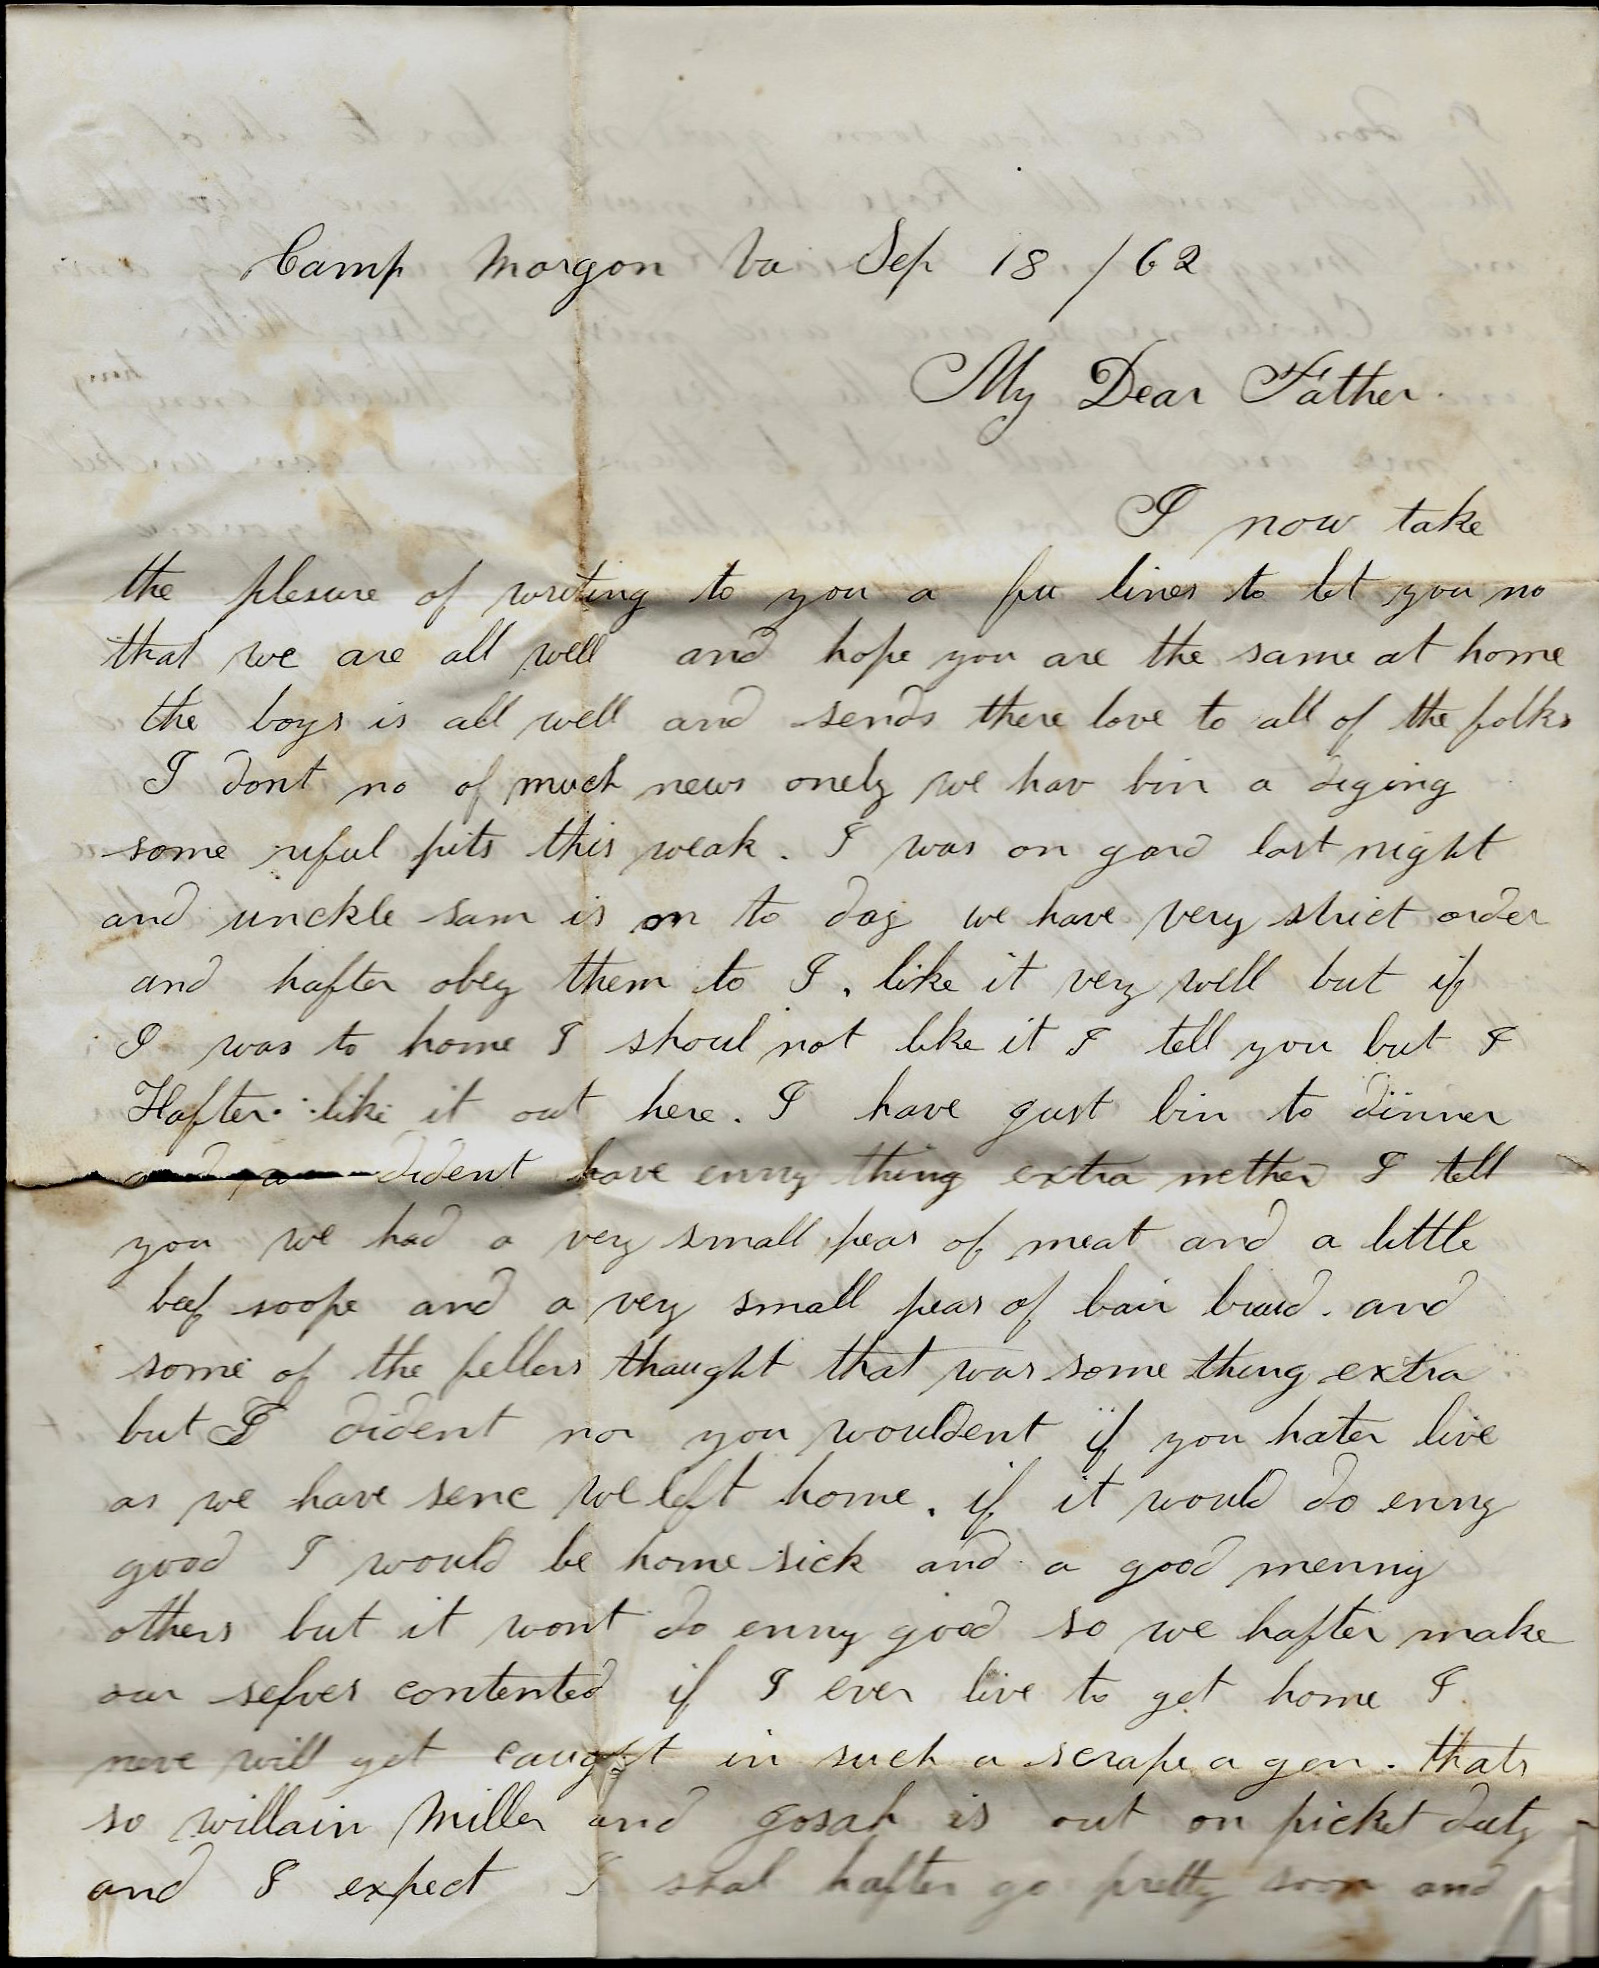 Camp Morgon Va Sep 18 / 62
My Dear Father.
I now take
the plesure of writing to you a fu lines to let you no
that we are all well and hope you are the same at home
the boys is all well and sends there love to all of the folks
I dont no of much news onely we hav bin a diging
some riful pits this weak. I was on gard last night
and unckle sam is on to day we have very strict order
and hafter obey them to I. like it very well but if
I was to home I shoul not like it I tell you but I
Hafter like it out here. I have gust bin to dinner
and dident have enny thing extra nether I tell
you we had a very small peas of meat and a little
beef soope and a very small peas of bair braid. and
some of the fellers thaught that was some thing extra
but I dident nor you wouldent if you hater live
as we have senc we left home. if it would do enny
good I would be home sick and a good menny
others but it wont do enny good so we hafter make
our selves contented if I ever live to get home I
neve will get caught in such a scrape a gen. thats
so willain Miller and gosah is out on picket duty
and I expect I shal hafter go pretty soon and